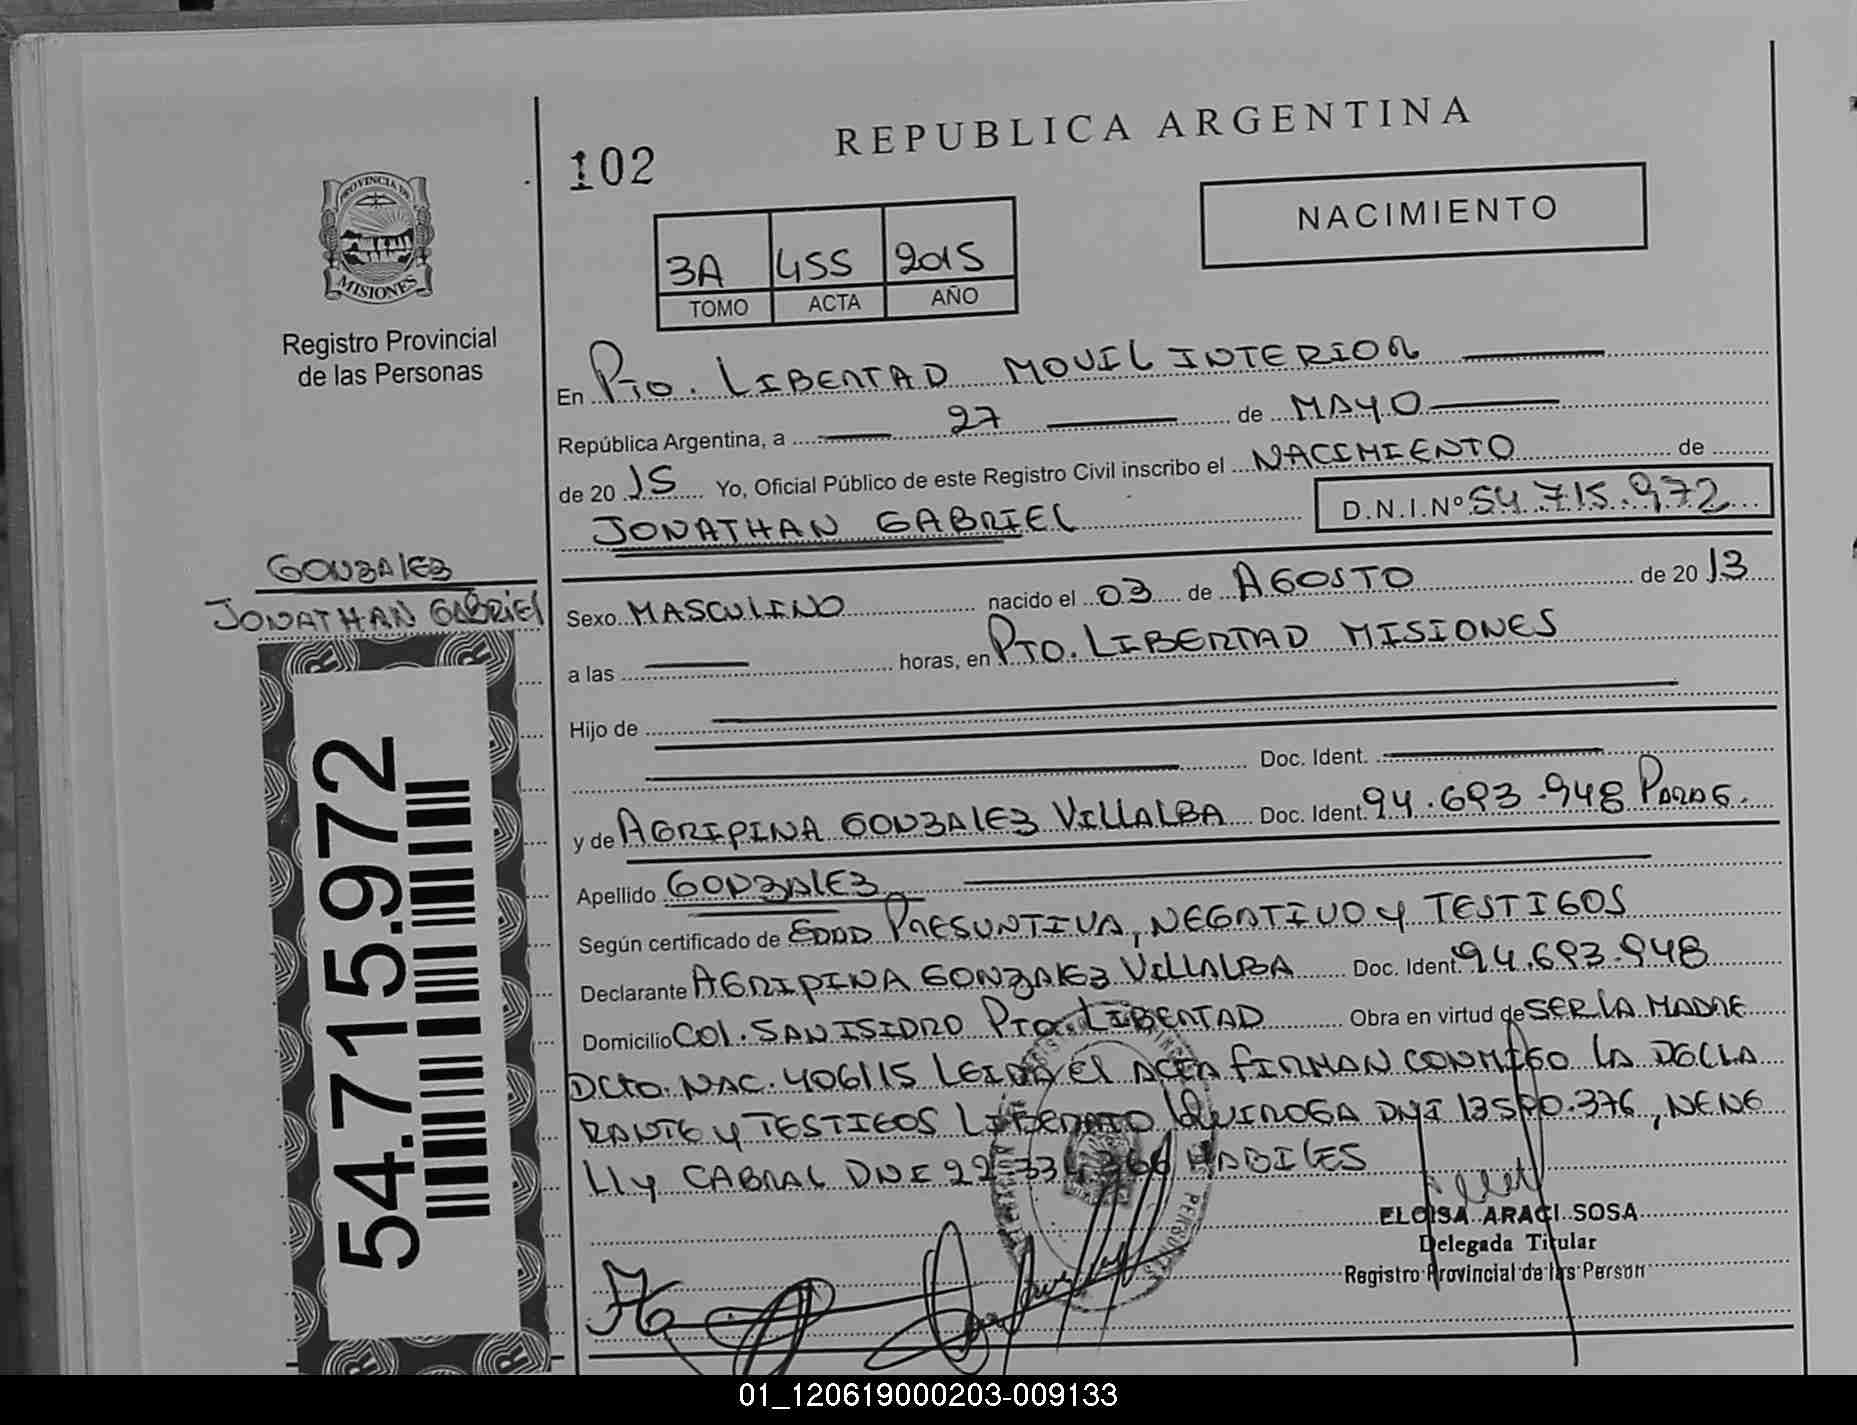 REPUBLICA ARGENTINA
102
NACIMIENTO
3A 455 2015
TOMO ACTA AÑO
PROVINCIA DE
MISIONES
Registro Provincial
de las Personas
En PTO. LIBERTAD MOVIL INTERIOR
República Argentina, a 27 de MAYO
de 2015 Yo, Oficial Público de este Registro Civil inscribo el NACIMIENTO de
JONATHAN GABRIEL D.N.I.Nº 54.715.972
GONZALEZ
JONATHAN GABRIEL
Sexo MASCULINO nacido el 03 de AGOSTO de 2013
a las horas, en PTO. LIBERTAD MISIONES
Hijo de
Doc. Ident.
y de AGRIPINA GONZALEZ VILLALBA Doc. Ident. 94.693.948 PARAG.
Apellido GONZALEZ
Según certificado de EDAD PRESUNTIVA, NEGATIVO y TESTIGOS
Declarante AGRIPINA GONZALEZ VILLALBA Doc. Ident. 94.693.948
Domicilio COL. SAN ISIDRO PTO. LIBERTAD Obra en virtud de SER LA MADRE
DCTO. NAC. 406/15 LEIDA EL ACTA FIRMAN CONMIGO LA DECLA
RANTE y TESTIGOS LIBERATO QUIROGA DNI, NENE
LLY CABRAL DNI HABILES
54.715.972
ELOISA ARACI SOSA
Delegada Titular
Registro Provincial de las Person
01_120619000203-009133